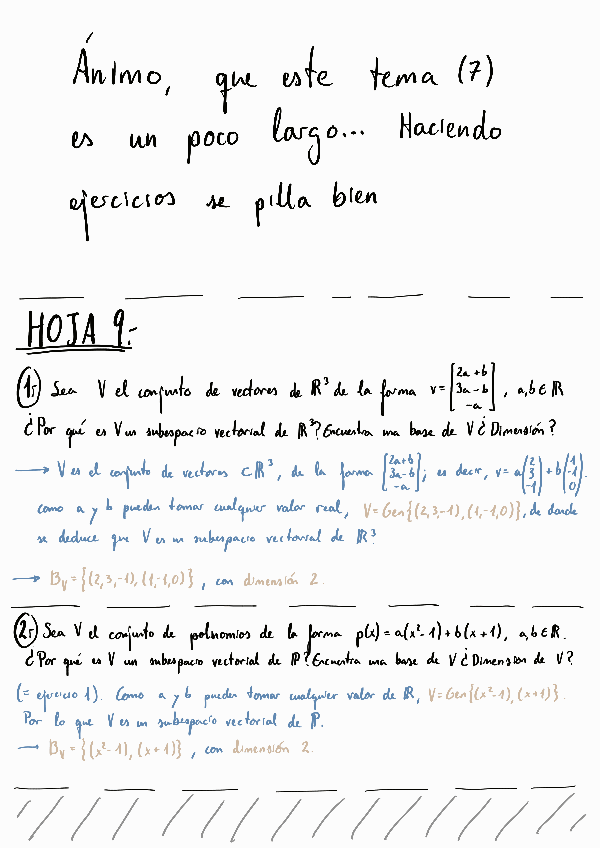 Ánimo, que este tema (7)
es un poco largo... Haciendo
ejercicios se pilla bien
HOJA 9.-
1.- Sea V el conjunto de vectores de ℝ³ de la forma v = [2a+b 3a-b -a], a,b ∈ ℝ
¿Por qué es V un subespacio vectorial de ℝ³? Encuentra una base de V ¿Dimensión?
→ V es el conjunto de vectores ⊂ ℝ³, de la forma [2a+b 3a-b -a]; es decir, v = a(2 3 -1) + b(1 -1 0),
como a y b pueden tomar cualquier valor real, V = Gen{(2,3,-1),(1,-1,0)}, de donde
se deduce que V es un subespacio vectorial de ℝ³
→ Bv = {(2,3,-1),(1,-1,0)}, con dimensión 2.
2.- Sea V el conjunto de polinomios de la forma p(x) = a(x²-1)+b(x+1), a,b ∈ ℝ.
¿Por qué es V un subespacio vectorial de ℙ? Encuentra una base de V ¿Dimensión de V?
(= ejercicio 1). Como a y b pueden tomar cualquier valor de ℝ, V = Gen{(x²-1),(x+1)}.
Por lo que V es un subespacio vectorial de ℙ.
→ Bv = {(x²-1),(x+1)}, con dimensión 2.